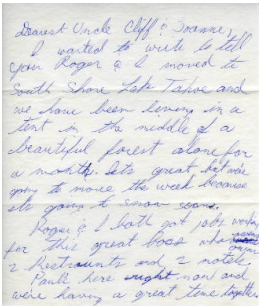 Dearest Uncle Cliff & Joanne,
I wanted to write to tell
you Roger & I moved to
South Shore Lake Tahoe and
we have been living in a
tent in the middle of a
beautiful forest alone for
a month. Its great but were
going to move the week because
its going to snow soon.
Roger & I both got jobs working
for this great boss who
2 Restraunts and 2 motels.
Paul here right now and
were having a great time together